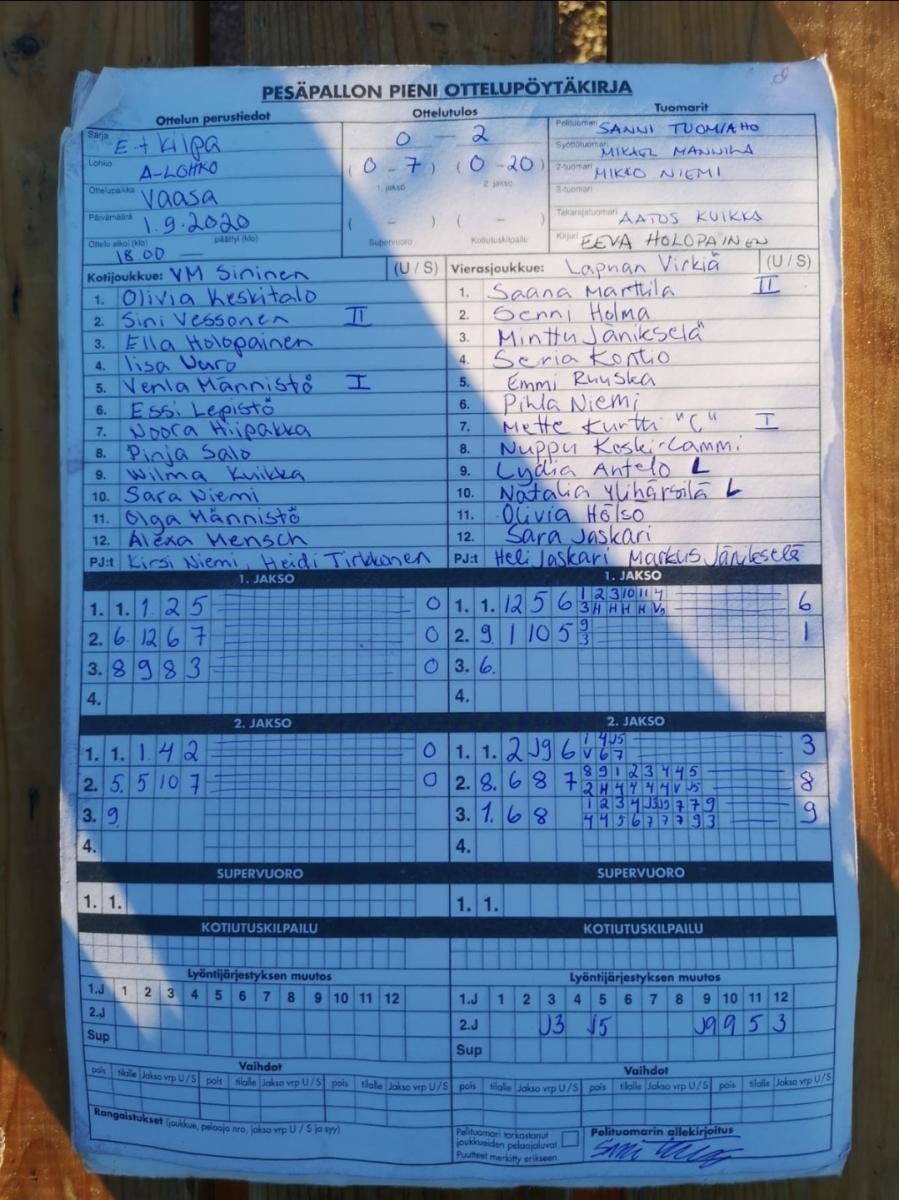 PESÄPALLON PIENI OTTELUPÖYTÄKIRJA
Ottelun perustiedot
Sarja E+ Kilpa
Lohko A-LOHKO
Ottelupaikka Vaasa
Päivämäärä 1.9.2020
Ottelu alkoi (klo) päättyi (klo)
18.00 —
Ottelutulos
0 – 2
(0-7) (0-20)
1. jakso 2. jakso
( - ) ( - )
Supervuoro Kotiutuskilpailu
Tuomarit
Pelituomari SANNI TUOMIAHO
Syöttötuomari MIKAEL MANNILA
2-tuomari MIKKO NIEMI
3-tuomari
Takarajatuomari AATOS KUIKKA
Kirjuri EEVA HOLOPAINEN
Kotijoukkue: VM Sininen (U / S)
1. Olivia Keskitalo
2. Sini Vessonen II
3. Ella Holopainen
4. Iisa Varo
5. Venla Männistö I
6. Essi Lepistö
7. Noora Hiipakka
8. Pinja Salo
9. Wilma Kuikka
10. Sara Niemi
11. Olga Männistö
12. Alexa Mensch
PJ:t Kirsi Niemi, Heidi Tirkkonen
Vierasjoukkue: Lapuan Virkiä (U / S)
1. Saana Marttila II
2. Senni Holma
3. Minttu Jänikselä
4. Seria Kontio
5. Emmi Ruuska
6. Pihla Niemi
7. Mette Kurtti "C" I
8. Nuppu Koski-Lammi
9. Lydia Antelo L
10. Natalia Ylihärsilä L
11. Olivia Hölsö
12. Sara Jaskari
PJ:t Heli Jaskari Markus Jänikselä
1. JAKSO
1. 1. 1 2 5 0
2. 6. 12 6 7 0
3. 8 9 8 3 0
4.
1. JAKSO
1. 1. 12 5 6 1 2 3 10 11 4 6
3 H H H H V2
2. 9. 1 10 5 9 1
3
3. 6.
4.
2. JAKSO
1. 1. 1 4 2 0
2. 5. 5 10 7 0
3. 9.
4.
2. JAKSO
1. 1. 2 J9 6 1 4 J5 3
V 6 7
2. 8. 6 8 7 8 9 1 2 3 4 4 5 8
2 H 4 4 4 4 V J5
3. 1. 6 8 1 2 3 4 J3 J5 7 7 9 9
4 4 5 6 7 7 7 9 3
4.
SUPERVUORO
1. 1.
SUPERVUORO
1. 1.
KOTIUTUSKILPAILU
KOTIUTUSKILPAILU
Lyöntijärjestyksen muutos
1.J 1 2 3 4 5 6 7 8 9 10 11 12
2.J
Sup
Lyöntijärjestyksen muutos
1.J 1 2 3 4 5 6 7 8 9 10 11 12
2.J J3 J5 J9 9 5 3
Sup
Vaihdot
pois tilalle Jakso vrp U / S pois tilalle Jakso vrp U / S pois tilalle Jakso vrp U / S
Vaihdot
pois tilalle Jakso vrp U / S pois tilalle Jakso vrp U / S pois tilalle Jakso vrp U / S
Rangaistukset (joukkue, pelaaja nro, jakso vrp U / S ja syy)
Pelituomari tarkastanut
joukkueiden pelaajaluvat.
Puutteet merkitty erikseen.
Pelituomarin allekirjoitus